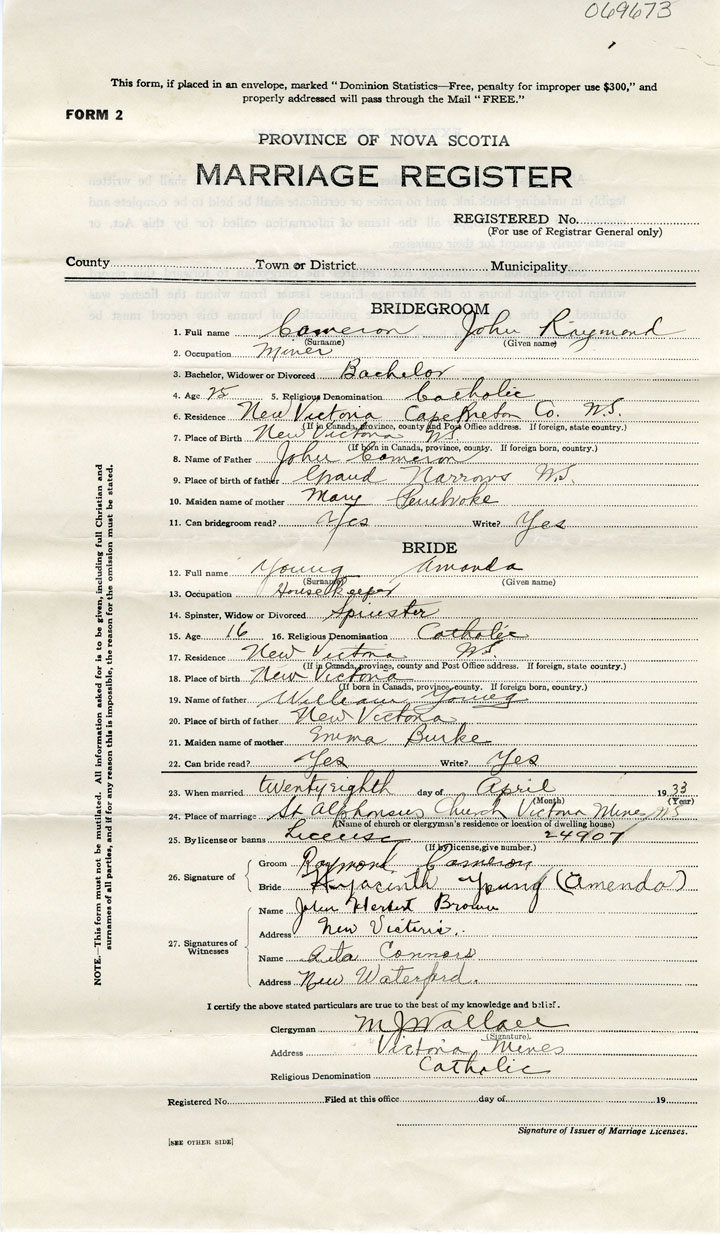 069673
This form, if placed in an envelope, marked "Dominion Statistics—Free, penalty for improper use $300," and
properly addressed will pass through the Mail "FREE."
FORM 2
PROVINCE OF NOVA SCOTIA
MARRIAGE REGISTER
REGISTERED No.
(For use of Registrar General only)
County Town or District Municipality
BRIDEGROOM
1. Full name Cameron John Raymond
(Surname) (Given name)
2. Occupation Miner
3. Bachelor, Widower or Divorced Bachelor
4. Age 25 5. Religious Denomination Catholic
6. Residence New Victoria Cape Breton Co. N.S.
(If in Canada, province, county and Post Office address. If foreign, state country.)
7. Place of Birth New Victoria N.S.
(If born in Canada, province, county. If foreign born, country.)
8. Name of Father John Cameron
9. Place of birth of father Grand Narrows N.S.
10. Maiden name of mother Mary Pembroke
11. Can bridegroom read? Yes Write? Yes
BRIDE
12. Full name Young Amanda
(Surname) (Given name)
13. Occupation Housekeeper
14. Spinster, Widow or Divorced Spinster
15. Age 16 16. Religious Denomination Catholic
17. Residence New Victoria N.S.
(If in Canada, province, county and Post Office address. If foreign, state country.)
18. Place of birth New Victoria
(If born in Canada, province, county. If foreign born, country.)
19. Name of father William Young
20. Place of birth of father New Victoria
21. Maiden name of mother Emma Burke
22. Can bride read? Yes Write? Yes
23. When married twenty eighth day of April 1933
(Month) (Year)
24. Place of marriage St Alphonsus Church Victoria Mines N.S
(Name of church or clergyman's residence or location of dwelling house)
25. By license or banns License 24907
(If by license, give number.)
26. Signature of Groom Raymond Cameron
Bride Hyacinth Young (Amenda)
27. Signatures of Witnesses
Name John Herbert Brown
Address New Victoria.
Name Rita Connors
Address New Waterford.
I certify the above stated particulars are true to the best of my knowledge and belief.
Clergyman M J Wallace
(Signature).
Address Victoria Mines
Religious Denomination Catholic
Registered No. Filed at this office day of 19
Signature of Issuer of Marriage Licenses.
[SEE OTHER SIDE]
NOTE.—This form must not be mutilated. All information asked for is to be given, including full Christian and
surnames of all parties, and if for any reason this is impossible, the reason for the omission must be stated.